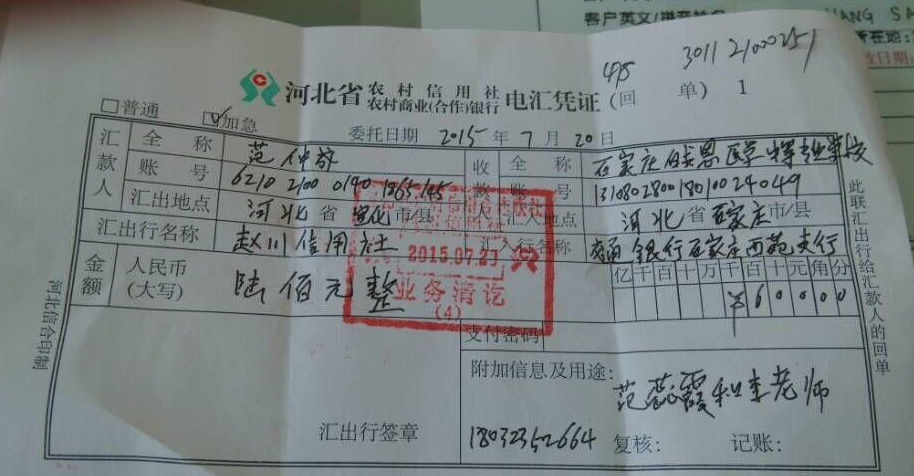 客户英文/拼音姓名 ANG SA
所在地:
日期:
475 3011 2100251
河北省 农村信用社 农村商业(合作)银行 电汇凭证 (回单) 1
普通
加急
委托日期 2015年7月20日
汇款人 全称 范仲 收款人 全称 石家庄 医学 专业学校
账号 6210 2100 0190 1265145 账号 131080280018010024049
汇出地点 河北省宣化市/县 汇入地点 河北省石家庄市/县
汇出行名称 赵川信用社 汇入行名称 交通银行石家庄西苑支行
金额 人民币(大写) 陆佰元整 亿千百十万千百十元角分
¥60000
2015.07.20
业务清讫
(4)
支付密码
附加信息及用途:
范蕊霞和李老师
18032352664
汇出行签章 复核: 记账:
此联汇出行给汇款人的回单
河北信合印制